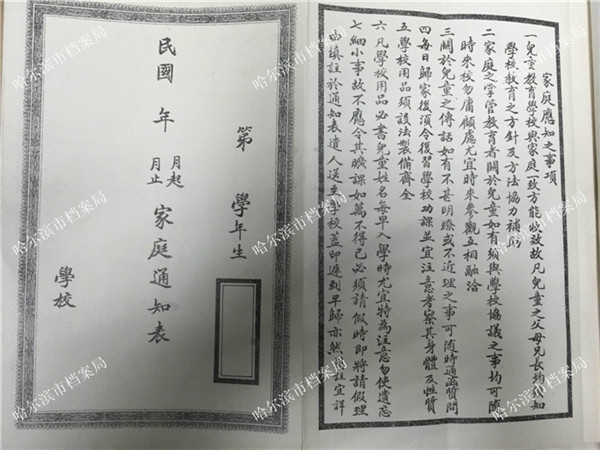 家庭應知之事項
一兒童教育學校與家庭一致方能收效故凡兒童之父母兄長均知
學校教育之方針及方法協力補助
二家庭之掌管教育者關於兒童如有須與學校協議之事均可隨
時來校勿庸顧慮尤宜時來參觀互相融洽
三關於兒童之傳話如有不甚明瞭或不近理之事可隨時通函質問
四每日歸家後須令復習學校功課並宜注意考察其身體及性質
五學校用品須設法製備齊全
六凡學校用品必書兒童姓名每早入學時尤宜特為注意勿使遺忘
七細小事故不應令其曠課如萬不得已必須請假時即將請假理
由填註於通知表遣人送至學校蓋印遲到早歸亦然註宜詳
第 學年生
民國 年 月起 月止 家庭通知表
學校
哈尔滨市档案局
哈尔滨市档案局
哈尔滨市档案局
哈尔滨市档案局
哈尔滨市档案局
哈尔滨市档案局